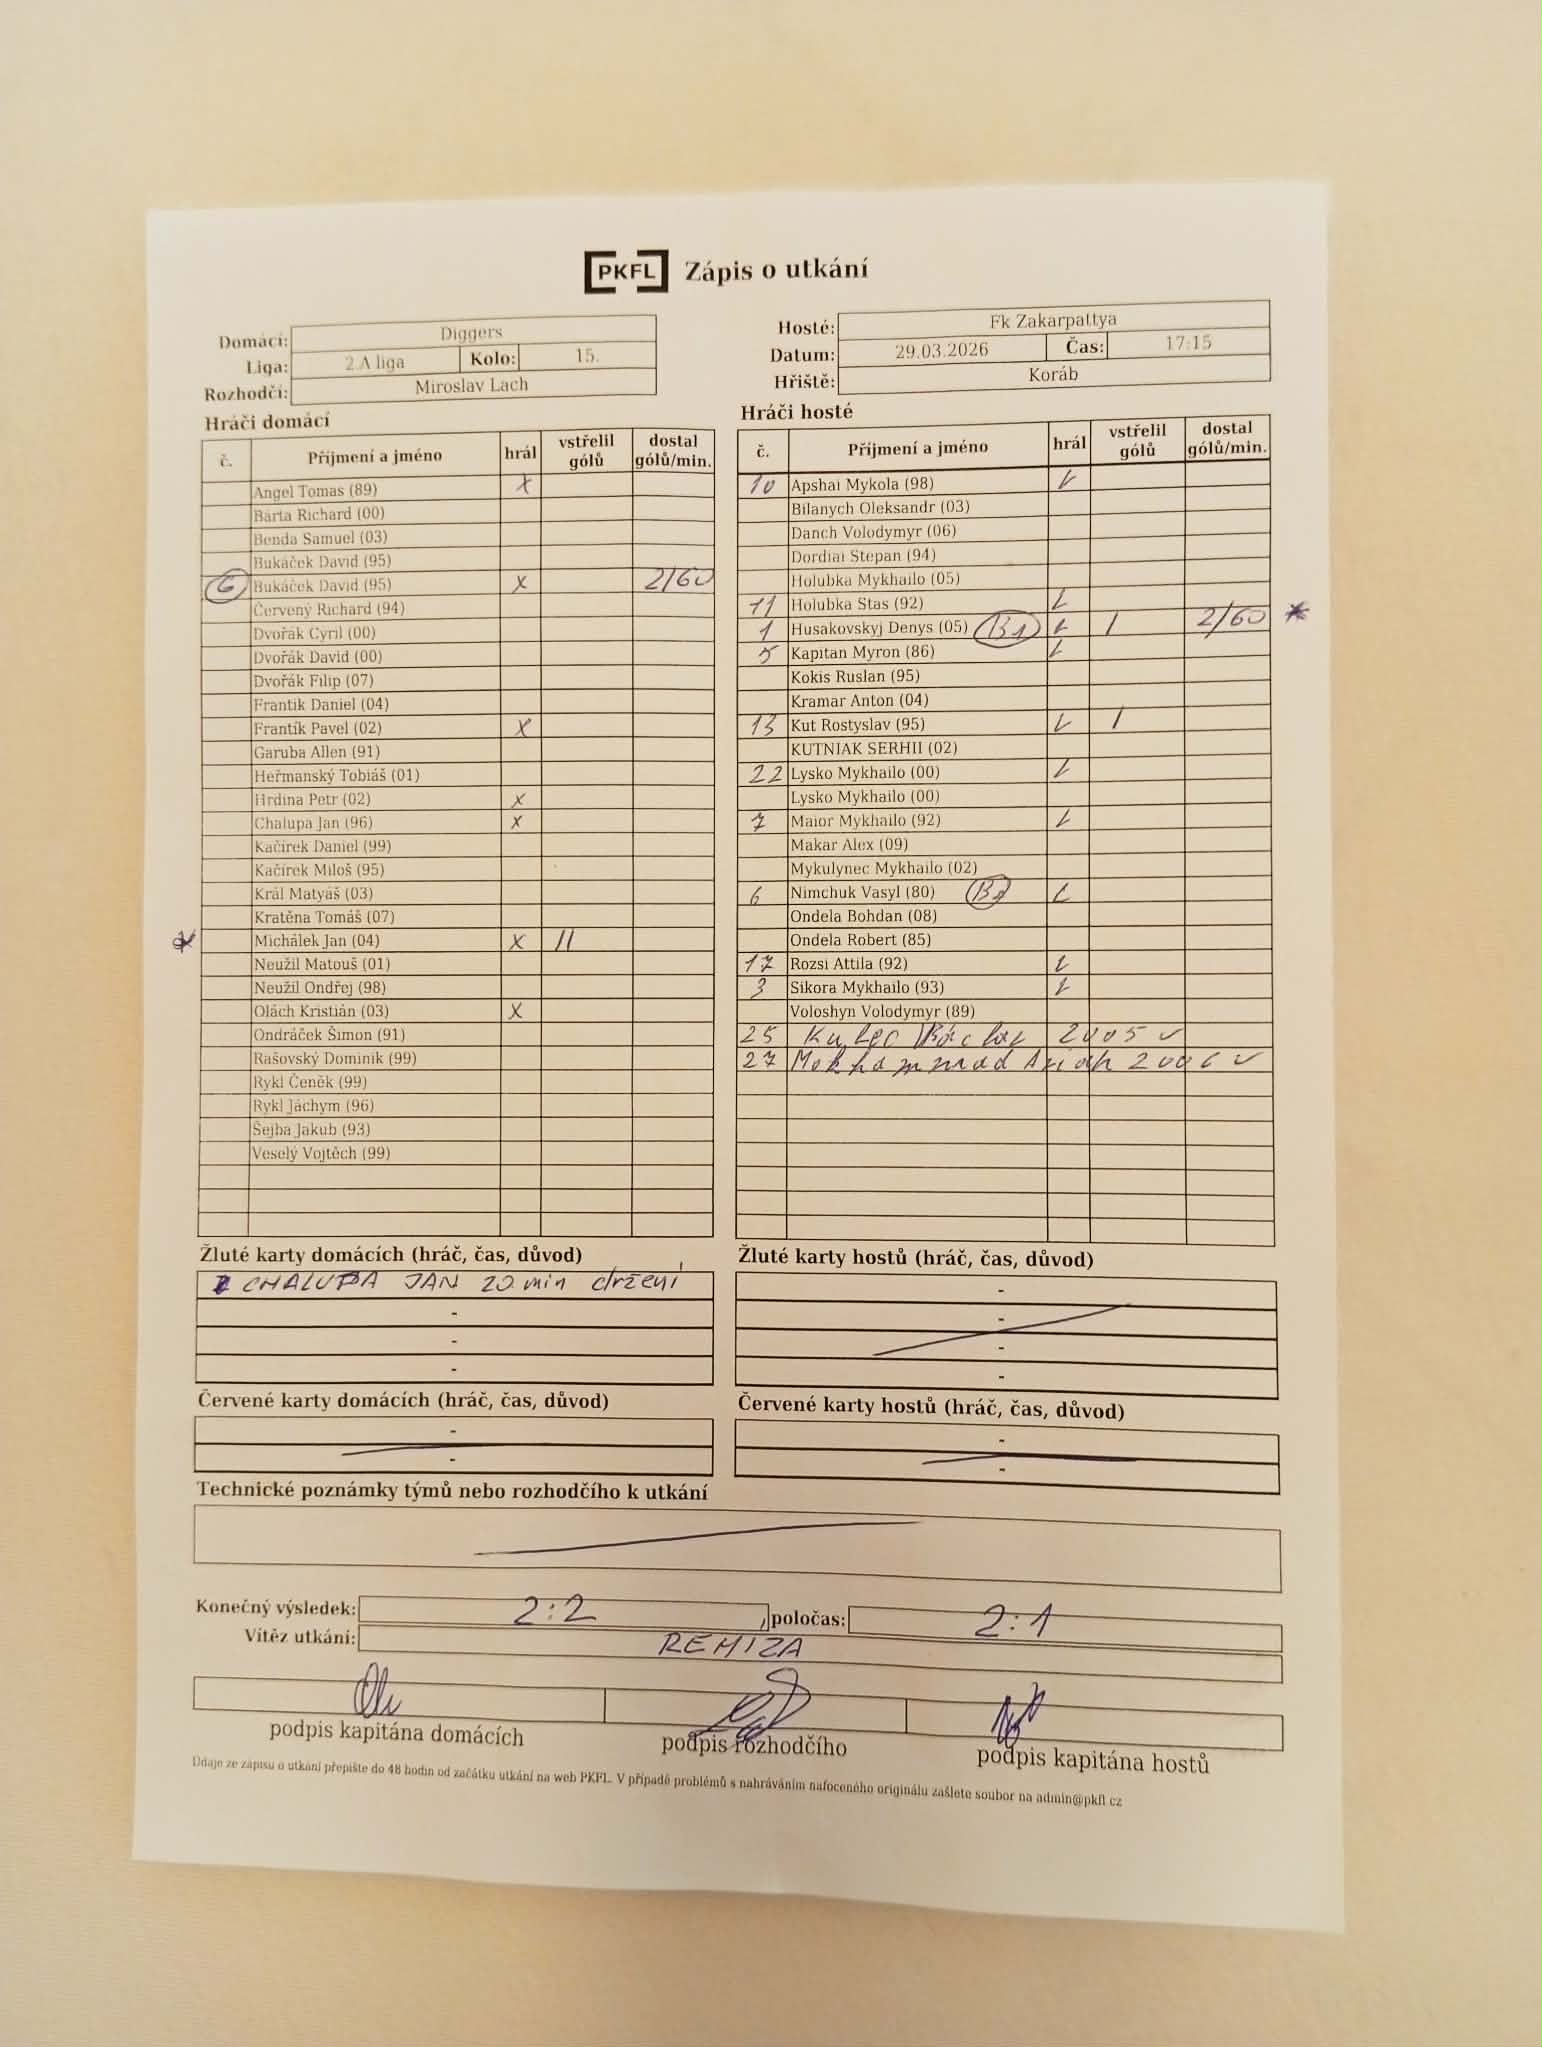 PKFL Zápis o utkání
Domácí: Diggers
Liga: 2.A liga Kolo: 15.
Rozhodčí: Miroslav Lach
Hosté: Fk Zakarpattya
Datum: 29.03.2026 Čas: 17:15
Hřiště: Koráb
Hráči domácí
č. Příjmení a jméno hrál vstřelil gólů dostal gólů/min.
Angel Tomas (89) x
Bárta Richard (00)
Benda Samuel (03)
Bukáček David (95)
G Bukáček David (95) x 2/60
Červený Richard (94)
Dvořák Cyril (00)
Dvořák David (00)
Dvořák Filip (07)
Frantik Daniel (04)
Frantík Pavel (02) x
Garuba Allen (91)
Heřmanský Tobiáš (01)
Hrdina Petr (02) x
Chalupa Jan (96) x
Kačírek Daniel (99)
Kačírek Miloš (95)
Král Matyáš (03)
Kratěna Tomáš (07)
* Michálek Jan (04) x II
Neužil Matouš (01)
Neužil Ondřej (98)
Olách Kristián (03) x
Ondráček Šimon (91)
Rašovský Dominik (99)
Rykl Čeněk (99)
Rykl Jáchym (96)
Šejba Jakub (93)
Veselý Vojtěch (99)
Hráči hosté
č. Příjmení a jméno hrál vstřelil gólů dostal gólů/min.
10 Apshai Mykola (98) ✓
Bilanych Oleksandr (03)
Danch Volodymyr (06)
Dordiai Stepan (94)
Holubka Mykhailo (05)
11 Holubka Stas (92) ✓
1 Husakovskyj Denys (05) B1 ✓ I 2/60 *
5 Kapitan Myron (86) ✓
Kokis Ruslan (95)
Kramar Anton (04)
13 Kut Rostyslav (95) ✓ I
KUTNIAK SERHII (02)
22 Lysko Mykhailo (00) ✓
Lysko Mykhailo (00)
7 Maior Mykhailo (92) ✓
Makar Alex (09)
Mykulynec Mykhailo (02)
6 Nimchuk Vasyl (80) B2 ✓
Ondela Bohdan (08)
Ondela Robert (85)
17 Rozsi Attila (92) ✓
3 Sikora Mykhailo (93) ✓
Voloshyn Volodymyr (89)
25 2005 ✓
27 Mokhammad 2006 ✓
Žluté karty domácích (hráč, čas, důvod)
CHALUPA JAN 20 min držení
-
-
-
Žluté karty hostů (hráč, čas, důvod)
-
-
-
-
Červené karty domácích (hráč, čas, důvod)
-
-
Červené karty hostů (hráč, čas, důvod)
-
-
Technické poznámky týmů nebo rozhodčího k utkání
Konečný výsledek: 2:2 , poločas: 2:1
Vítěz utkání: REMIZA
podpis kapitána domácích podpis rozhodčího podpis kapitána hostů
Údaje ze zápisu o utkání přepište do 48 hodin od začátku utkání na web PKFL. V případě problémů s nahráváním nafoceného originálu zašlete soubor na admin@pkfl.cz